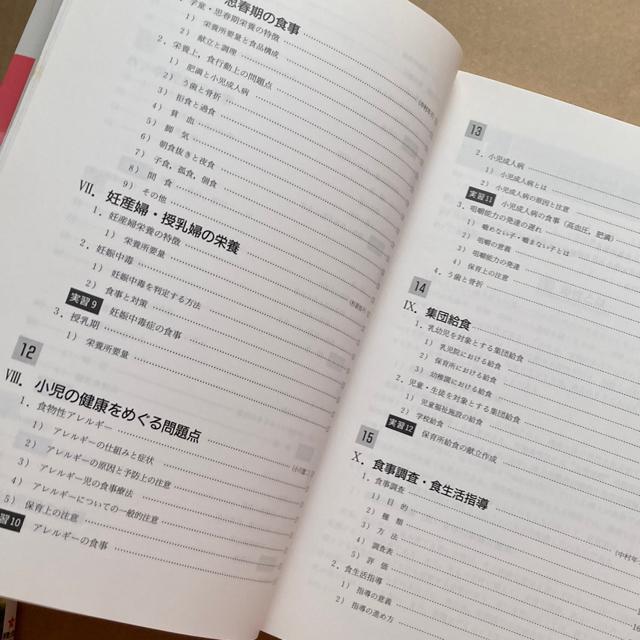 思春期の食事
1．学童・思春期栄養の特徴
1） 栄養所要量と食品構成
2） 献立と調理
2．栄養上，食行動上の問題点
1） 肥満と小児成人病
2） う歯と骨折
3） 拒食と過食
4） 貧 血
5） 脚 気
6） 朝食抜きと夜食
7） 子食，孤食，個食
8） 間 食
9） その他
VII．妊産婦・授乳婦の栄養
1．妊産婦栄養の特徴
1） 栄養所要量
2．妊娠中毒
1） 妊娠中毒を判定する方法
2） 食事と対策
実習9 妊娠中毒症の食事
3．授乳期
1） 栄養所要量
12
VIII．小児の健康をめぐる問題点
1．食物性アレルギー
1） アレルギーの仕組みと症状
2） アレルギーの原因と予防上の注意
3） アレルギー児の食事療法
4） アレルギーについての一般的注意
5） 保育上の注意
習10 アレルギーの食事
13
2．小児成人病
1） 小児成人病とは
2） 小児成人病の原因と注意
実習11 小児成人病の食事（高血圧，肥満）
3．咀嚼能力の発達の遅れ
1） 噛めない子・噛まない子とは
2） 咀嚼の意義
3） 咀嚼能力の発達
4） 保育上の注意
4．う歯と骨折
14
IX．集団給食
1．乳幼児を対象とする集団給食
1） 乳児院における給食
2） 保育所における給食
3） 幼稚園における給食
2．児童・生徒を対象とする集団給食
1） 児童福祉施設の給食
2） 学校給食
実習12 保育所給食の献立作成
15
X．食事調査・食生活指導
1．食事調査
1） 目 的
2） 種 類
3） 方 法
4） 調査表
5） 評 価
2．食生活指導
1） 指導の意義
2） 指導の進め方